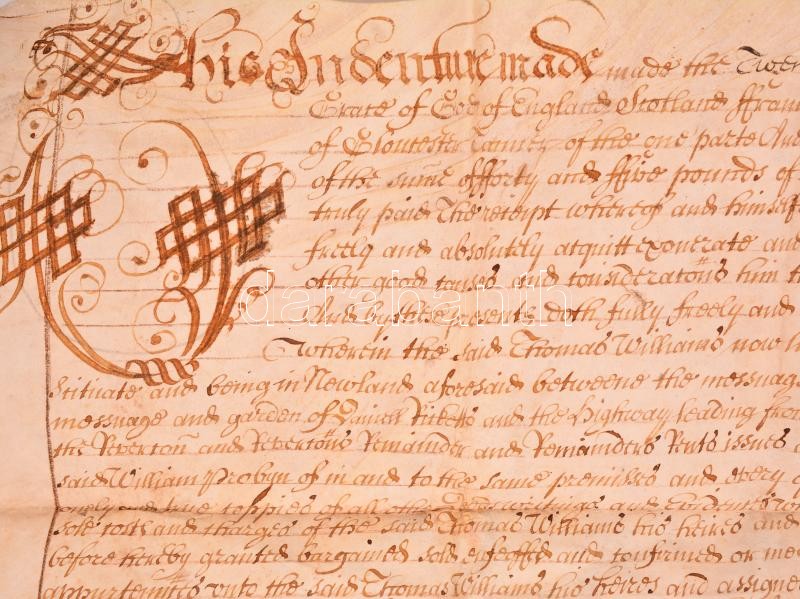 This Indenture made made the Twen
Grace of God of England Scotland ffran
of Gloucester of the one parte And
of the summe of fforty and ffive pounds of
truly paid The receipt whereof and himself
freely and absolutely acquitt exonerate and
other good causes and consideratons him
And by these presents doth fully freely and
wherein the said Thomas Williams now
Scituate and being in Newland aforesaid betweene the messuage
messuage and garden of Ricketts and the Highway leading from
the Reverton and Revertons Remainder and Remainders Rents issues
said William Probyn of in and to the same premisses and every
and true coppies of all other and Evidences
sole costs and charges of the said Thomas Williams his heires and
before hereby granted bargained sold enfeoffed and confirmed or
appurtences unto the said Thomas Williams his heires and assignes
darabanth